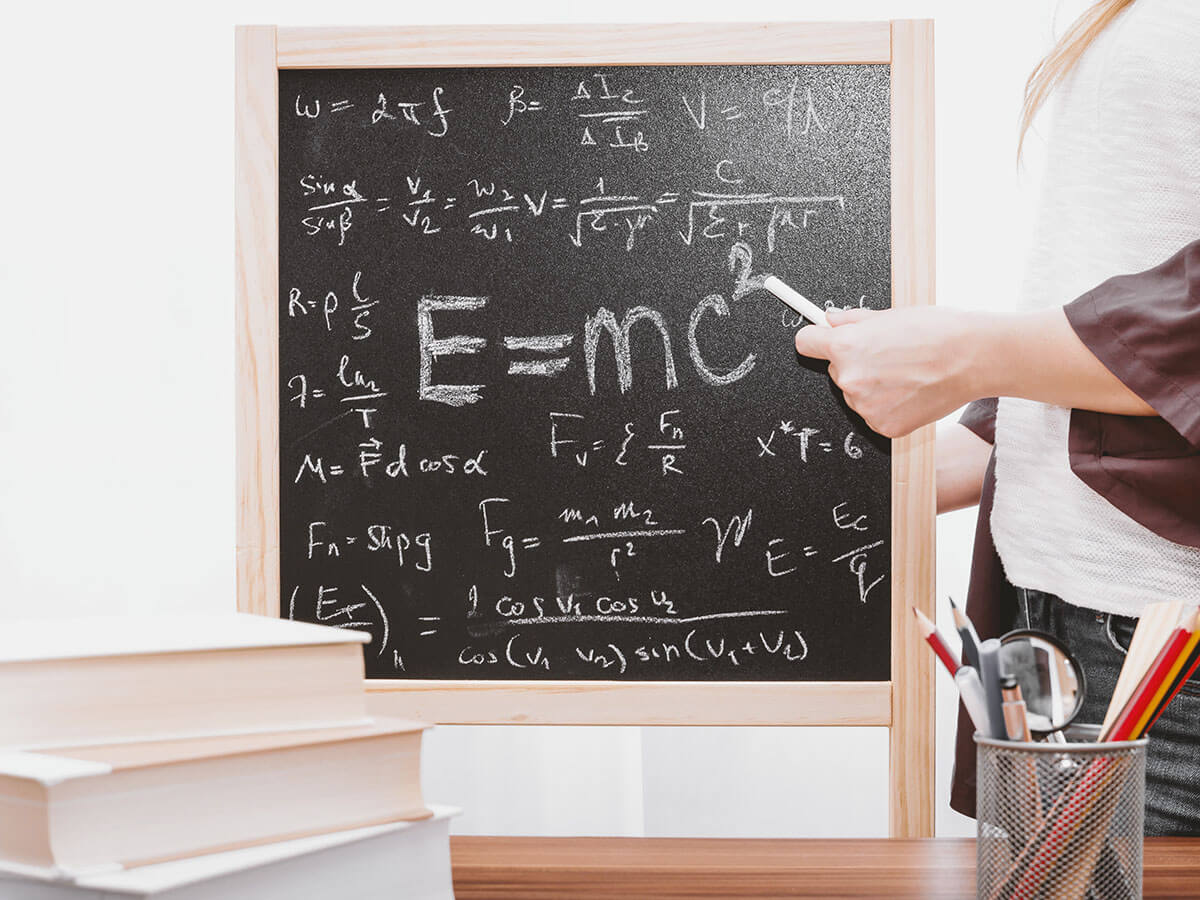 ω = 2πf β = ΔI_C / ΔI_B V = c/λ
sin α / sin β = v₁ / v₂ = V = 1 / √ = C / √
R = ρ l / S
E = mc²
= ln₂ / T
M = F⃗ d cos α F_v = ξ F_n / R x * T = 6
F_n = F_g = m₁ m₂ / r² E =
= 2 cos v₁ cos v₂ / cos(v₁ v₂) sin(v₁ + v₂)